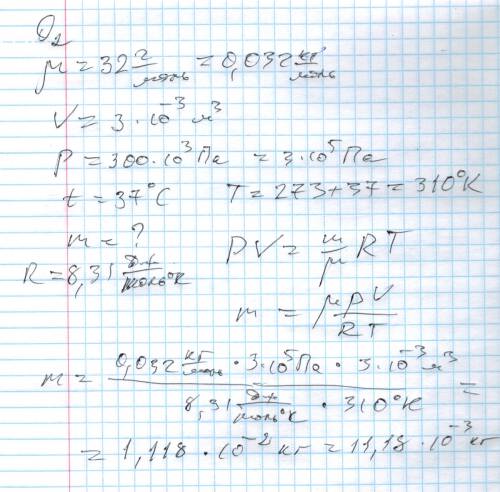 O₂
μ = 32 г/моль = 0,032 кг/моль
V = 3·10⁻³ м³
P = 300·10³ Па = 3·10⁵ Па
t = 37°C T = 273+37 = 310°K
m = ?
R = 8,31 Дж/моль°К
PV = m/μ RT
m = μPV/RT
m = 0,032 кг/моль · 3·10⁵ Па · 3·10⁻³ м³ / 8,31 Дж/моль°К · 310°К =
= 1,118·10⁻² кг = 11,18·10⁻³ кг